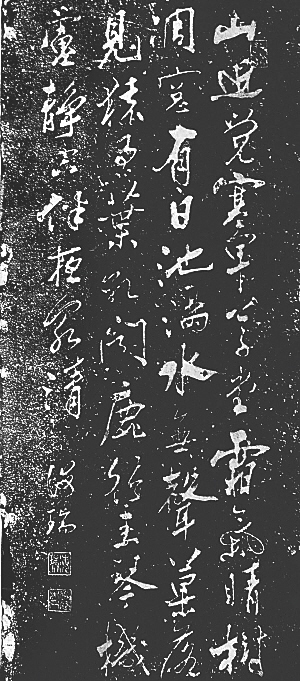 山覺寒早草堂霜氣晴樹
凋窓有日池滿水無聲菓落
見猿過葉乾聞鹿行素琴機
慮靜空伴夜泉清
海瑞